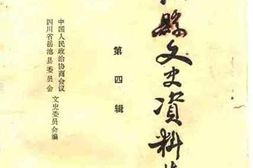 縣文史资料
第四辑
中国人民政治协商会议
四川省岳池县委员会
文史委员会编